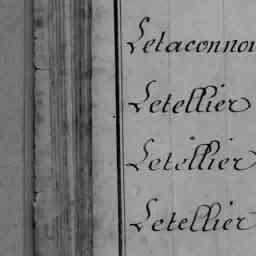 Letaconnou
Letellier
Letellier
Letellier